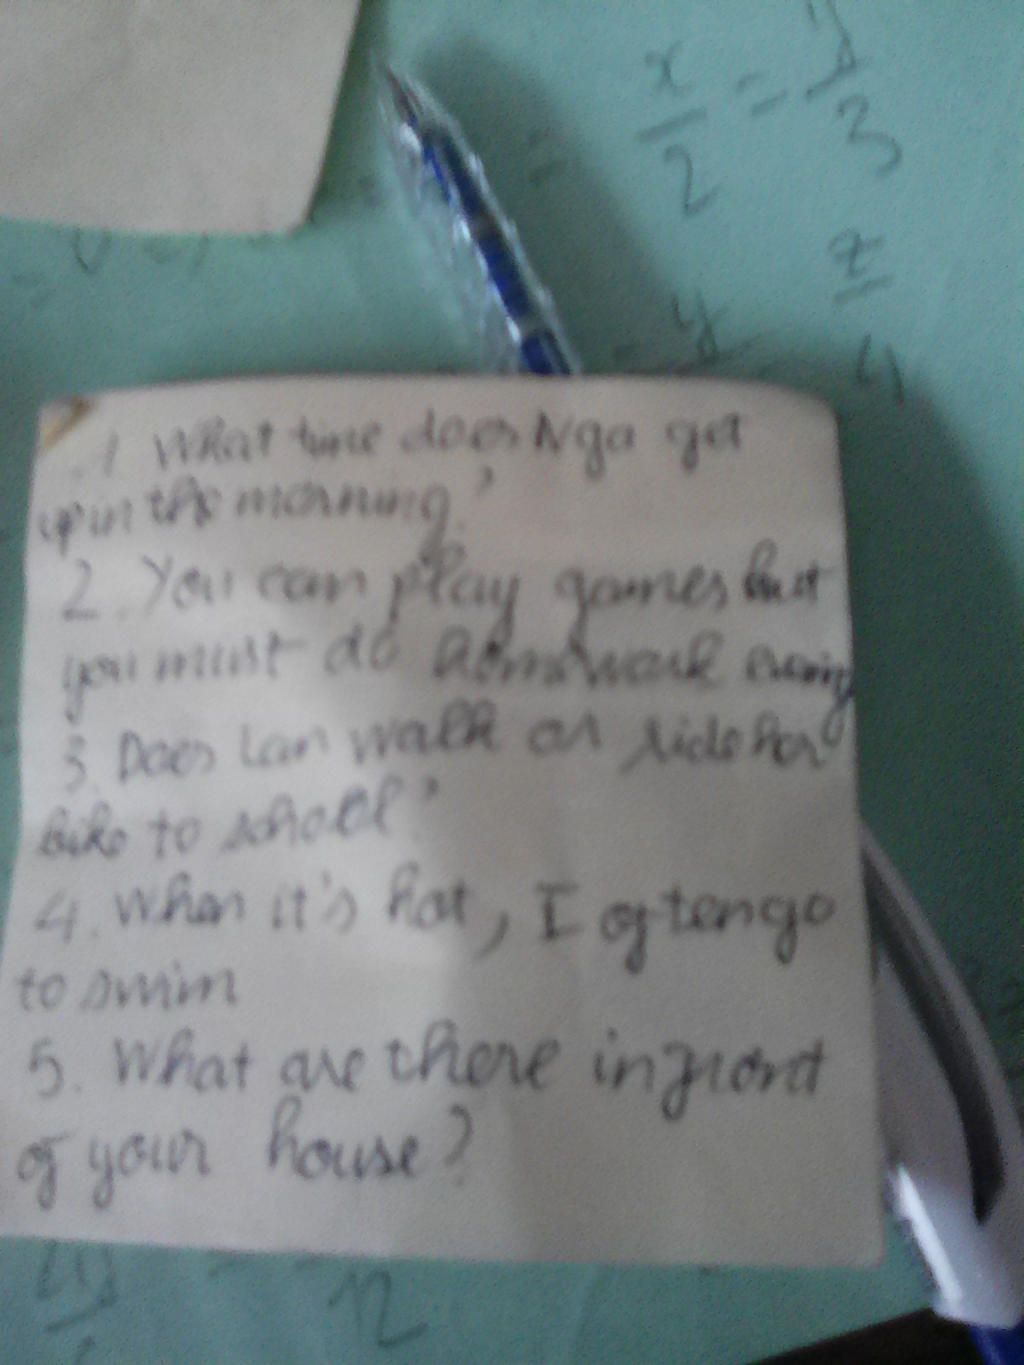 x/2 = y/3
z/4
y
1. What time does Nga get
up in the morning?
2. You can play games but
you must do homework evening
3. Does Lan walk or ride her
bike to school?
4. When it's hot, I often go
to swim
5. What are there in front
of your house?
12